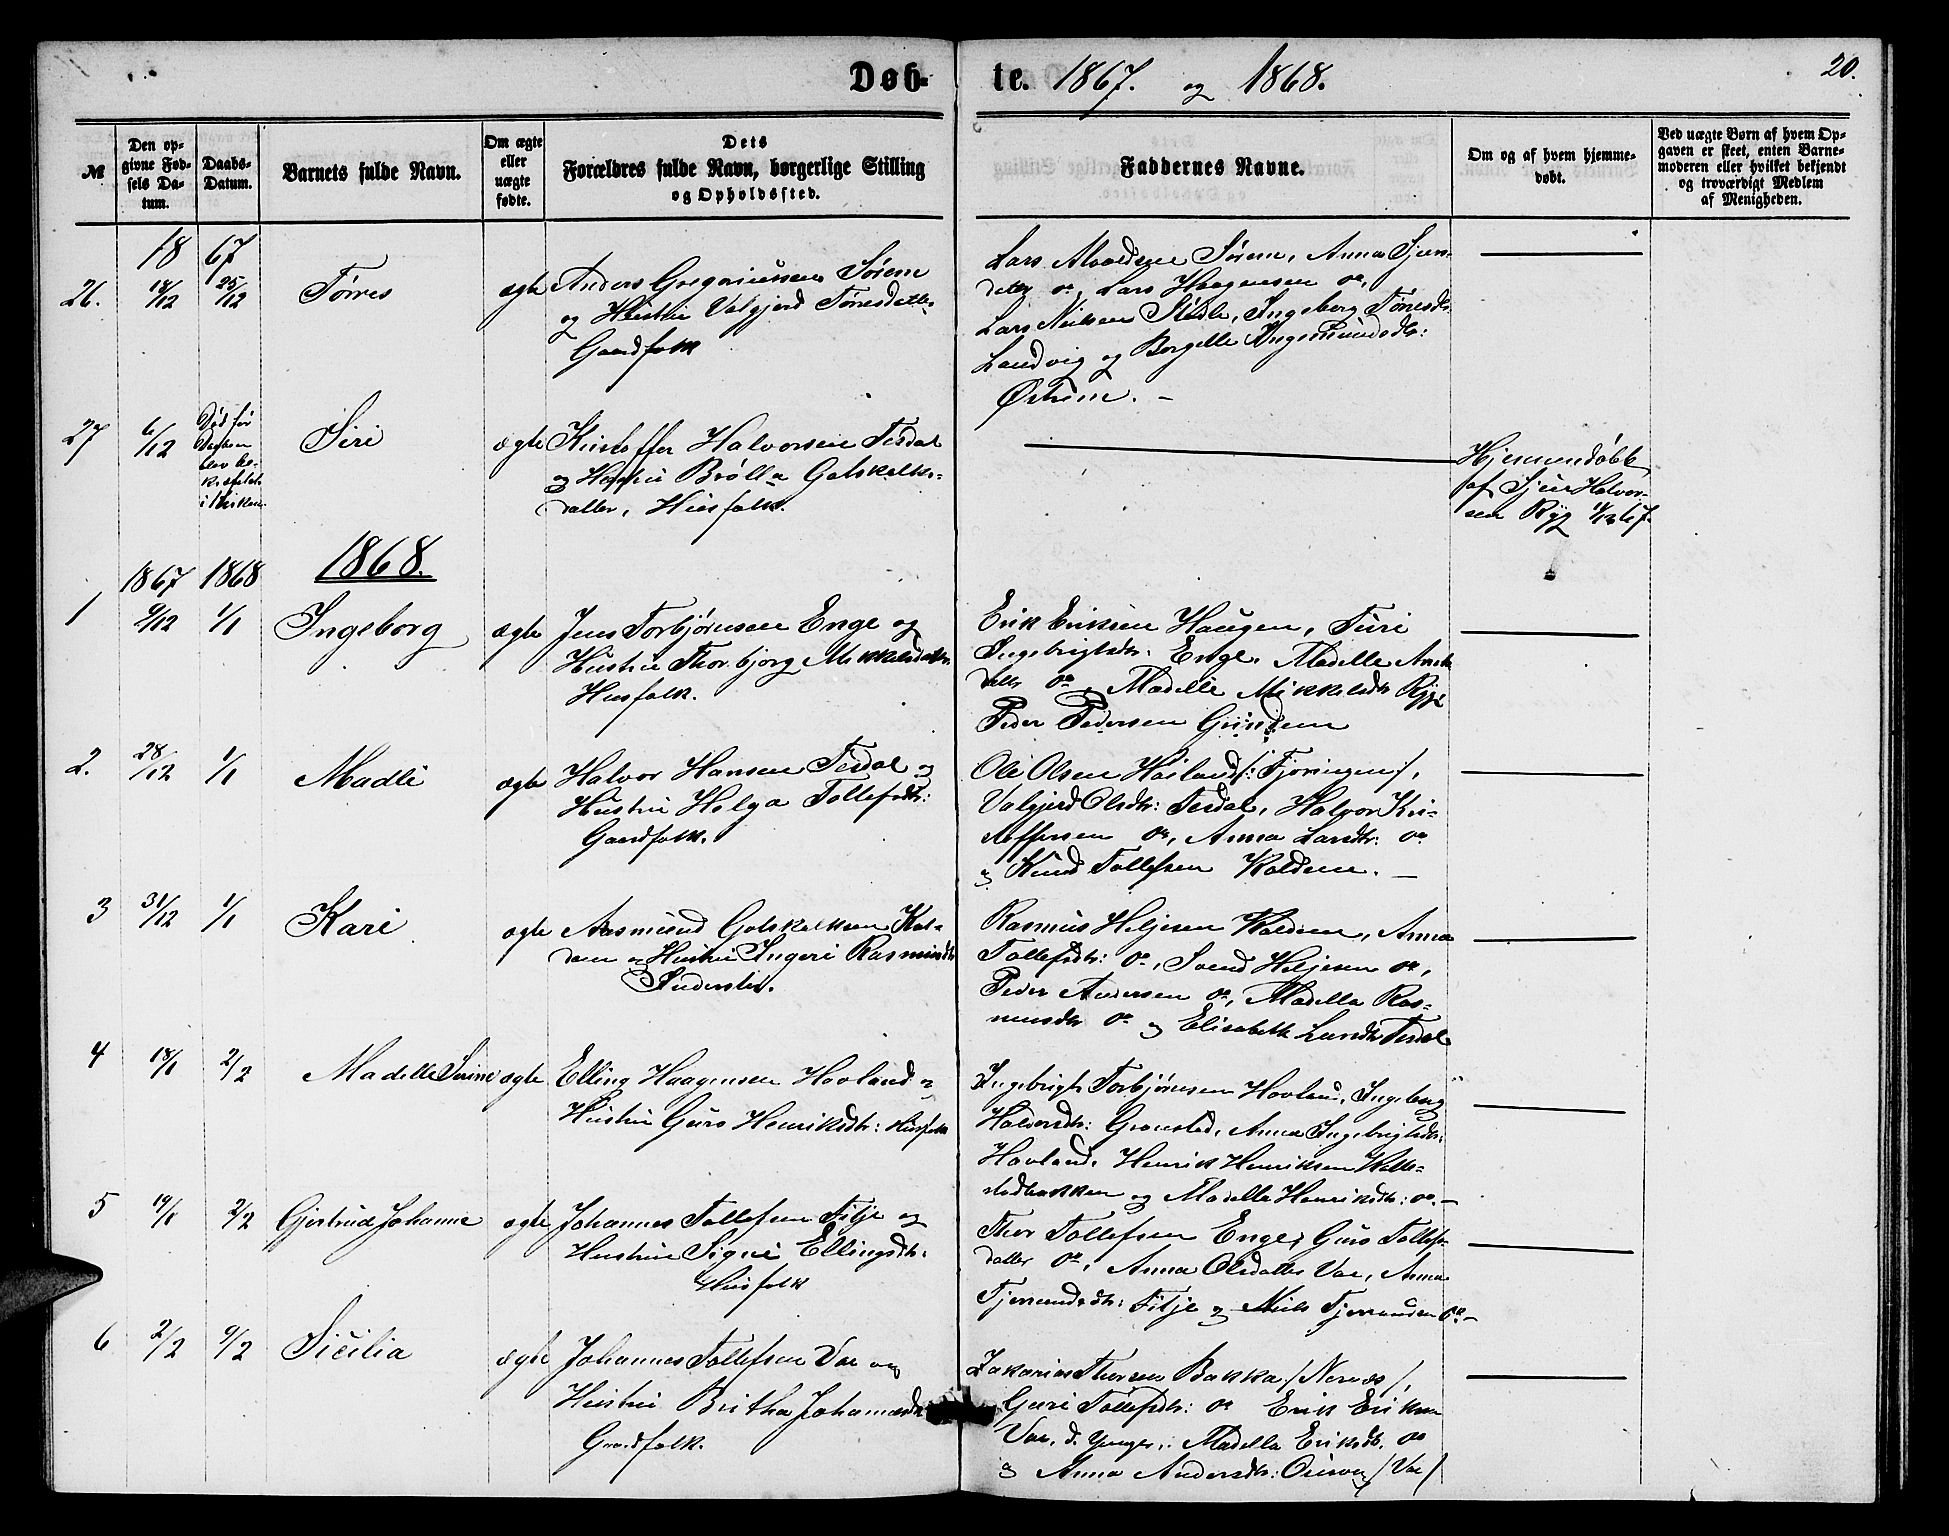 Døb-
te. 1867. og 1868.
20.
№
Den op-
givne Fød-
sels Da-
tum.
Daabs-
Datum.
Barnets fulde Navn.
Om ægte
eller
uægte
fødte.
Dets
Forældres fulde Navn, borgerlige Stilling
og Opholdssted.
Faddernes Navne.
Om og af hvem hjemme-
døbt.
Ved uægte Børn af hvem Op-
gaven er skeet, enten Barne-
moderen eller hvilket bekjendt
og troværdigt Medlem
af Menigheden.
18 67
26. 18/12 25/12 Tørres ægte
Anders Gregoriussen Sørem
og Hustru Valgjerd Tørresdatter
Gaardfolk
Lars Sørem, Anna Sjurs-
datter do, Lars Haagensen do,
Lars Nielsen Stødle, Ingeborg Tørresdtr
Landvig og Borgelle Ingemundsdtr:
Østrem. -
27 6/12
Død før
Daaben
blev be-
kræftet
i Kirken.
Siri ægte
Kristoffer Halvorsen Tesdal
og Hustru Brølla Gotskalks-
datter, Husfolk.
Hjemmedøbt
af Sjur Halvor-
sen Ryg 11/12 67.
1867 1868 1868.
1 9/12 1/1 Ingeborg ægte
Jens Torbjørnsen Enge og
Hustru Thorbjørg Mikkelsdatter
Husfolk.
Erik Eriksen Haugen, Turi
Ingebrigtsdtr: Enge, Madelle
datter do, Madelle Mikkelsdtr Rygg
Peder Pedersen Grindem
2. 28/12 1/1 Madli ægte
Halvor Hansen Tesdal og
Hustru Helga Tollefsdtr:
Gaardfolk.
Ole Olsen Høiland /: Fjoringen :/,
Valgjerd Olsdtr: Tesdal, Halvor Kri-
stoffersen do, Anna Larsdtr: do
og Knud Tollefsen Kaldem. -
3 31/12 1/1 Kari ægte
Aasmund Gotskalksen Kal-
dem og Hustru Ingeri Rasmusdtr
Inderster.
Rasmus Heljesen Kaldem, Anna
Tollefsdtr: do, Svend Heljesen do,
Peder Andersen do, Madella Ras-
musdtr do og Elisabeth Larsdtr Tesdal
4 18/1 2/2 Madelle Serine ægte
Elling Haagensen Hovland og
Hustru Guro Henriksdtr: Husfolk
Ingebrigt Torbjørnsen Hovland, Ingeborg
Halvorsdtr: Grønstad, Anna Ingebrigtsdtr:
Hovland, Henrik Henriksen
og Madella Henriksdtr: do. -
5 19/1 2/2 Gjertrud Johanne ægte
Johannes Tollefsen Fitje og
Hustru Signi Ellingsdtr:
Husfolk
Thor Tollefsen Enge, Guro Tollefs-
datter do, Anna Olsdatter Vae, Anna
Tjerandsdtr: Fitje og Niels Tjerandsen do. -
6 2/2 9/2 Sicilia ægte
Johannes Tollefsen Vae og
Hustru Britha Johannesdtr
Gaardfolk.
Zakarias Thorsen Bakka /Nernæs/,
Guri Tollefsdtr: do Erik Eriksen
Vae, d. yngre, Madella Eriksdtr. do
og Anna Andersdtr: /Vae/